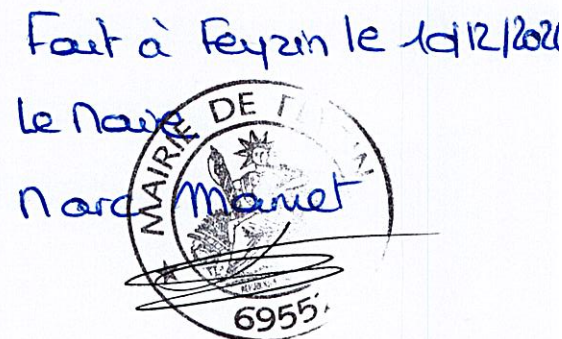 Fait à Feyzin le
Le Maire
Marc Mamet
MAIRIE DE
6955